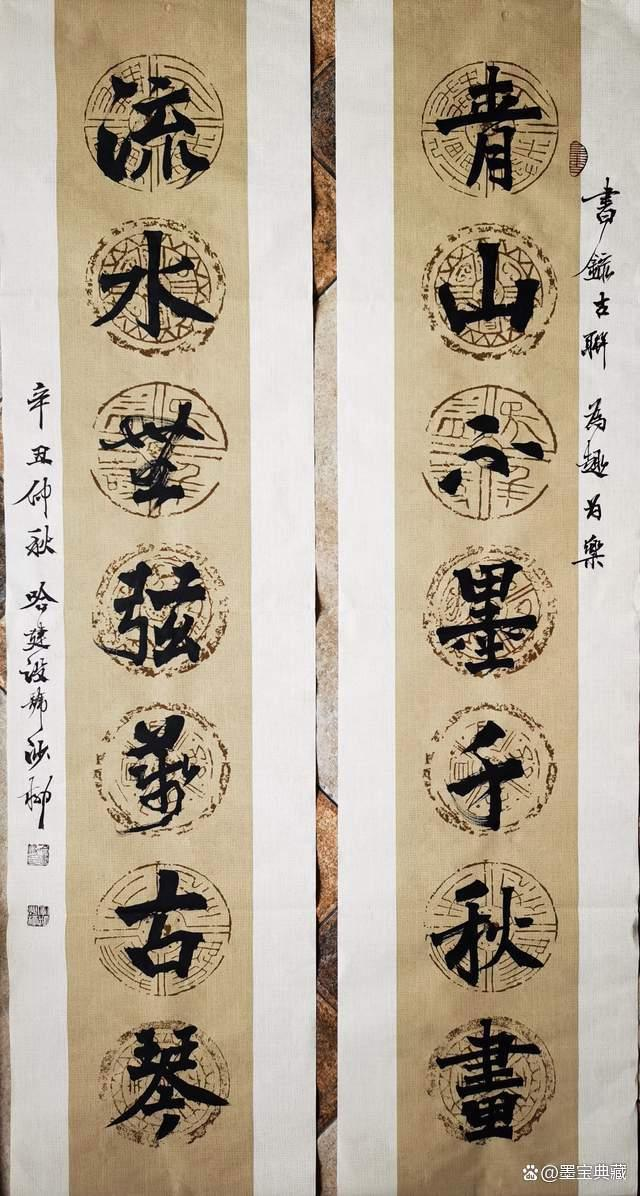 書錄古聯 為趣為樂
青山不墨千秋畫
流水無弦萬古琴
辛丑仲秋 哈建設號沙柳
@墨宝典藏